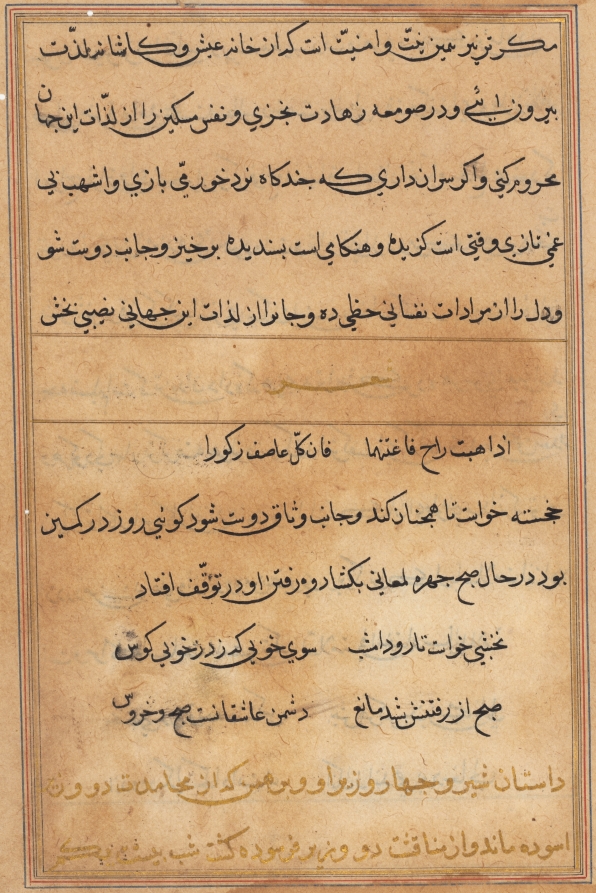 مکر ترا نیز همین نیّت و امنیّت است که از خانه عیش و کاشانه لذّت
بیرون ائی و در صومعه زهادت بخزی و نفس مسکین را از لذّات این جهان
محروم کنی و اکر سر ان داری که چندکاه نرد خورمّی بازی و اشهب بی
غمی تازی وقتی است کزیده و هنکامی است پسندیده برخیز و جانب دوست شو
و دل را از مرادات نفسانی حظی ده و جانرا از لذات این جهانی نصیبی بخش
شعر
اذا هبت راح فاغتنمها فان کلّ عاصف زکورا
خجسته خواست تا همچنان کند و جانب وثاق دوست شود کوئی روز در کمین
بود در حال صبح چهره لمعانی بکشاد و رفتن او در توقّف افتاد
نخشبی خواست تا رود امشب سوی خوبی که زد ز خوبی کوس
صبح از رفتنش شد مانع دشمن عاشقانست صبح و خروس
داستان شیر و چهار وزیر او و برهمن که از محامدت دو وزیر
اسوده ماند و از مناقشت دو وزیر فرسوده کشت شب